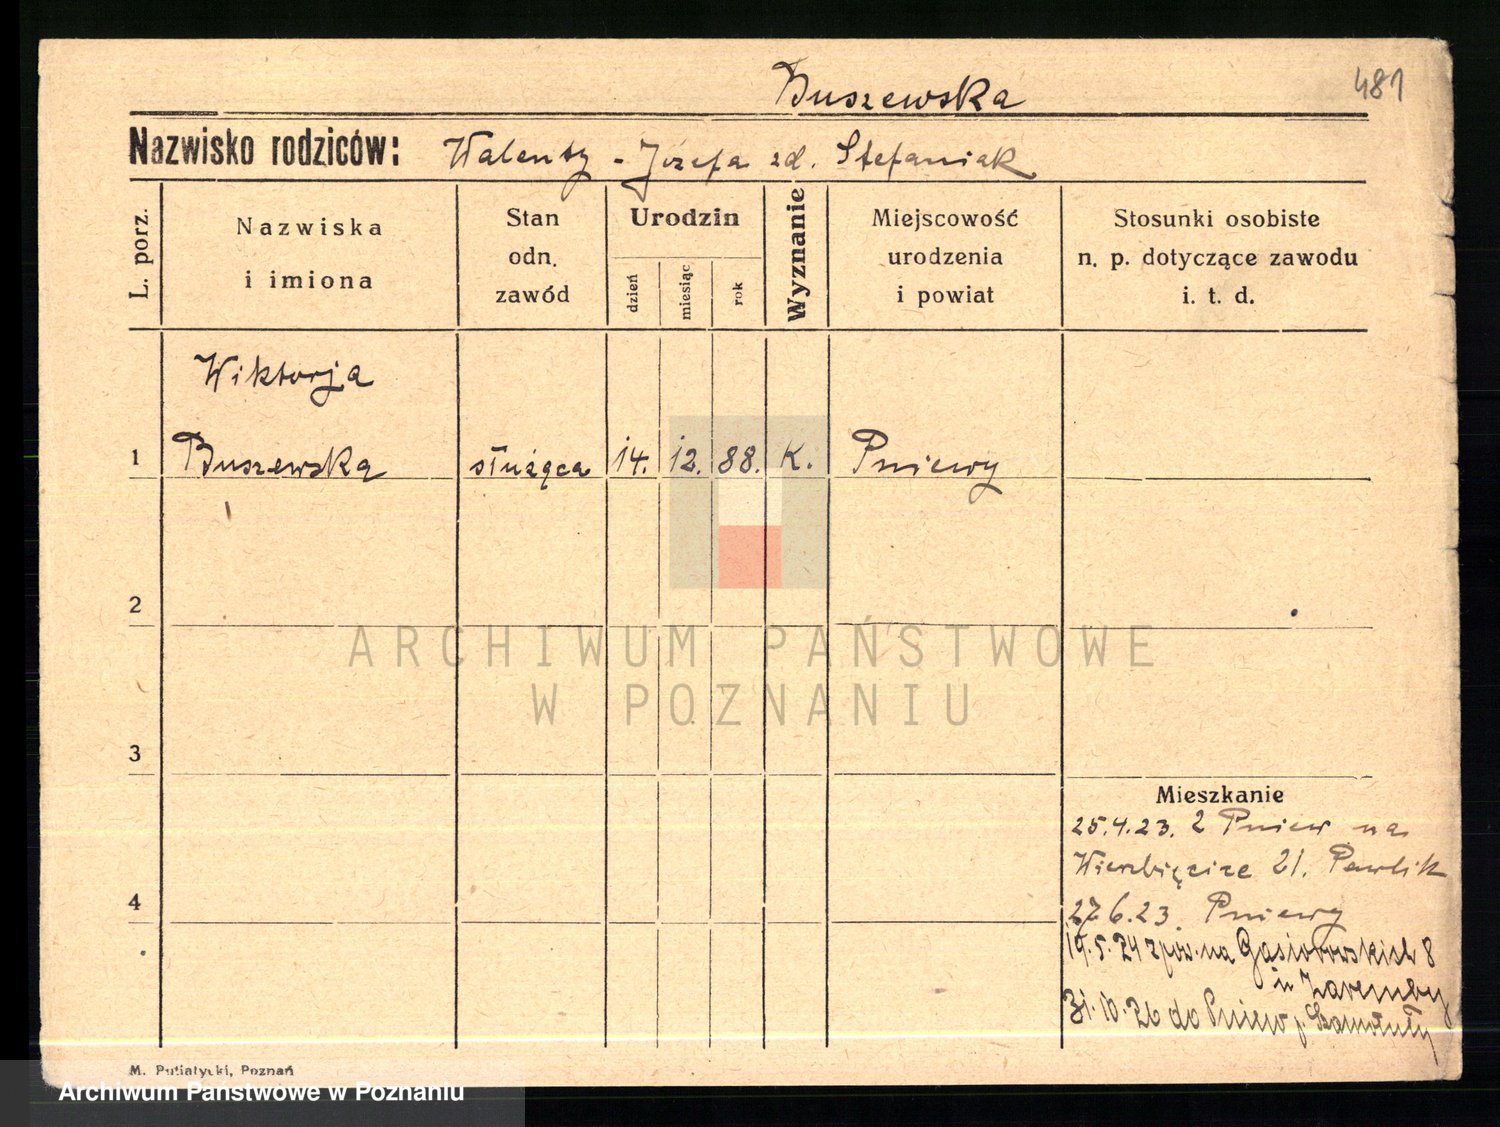 Buszewska
481
Nazwisko rodziców: Walenty - Józefa zd. Stefaniak
L. porz.
Nazwiska
i imiona
Stan
odn.
zawód
Urodzin
dzień
miesiąc
rok
Wyznanie
Miejscowość
urodzenia
i powiat
Stosunki osobiste
n. p. dotyczące zawodu
i. t. d.
Wiktorja
1 Buszewska służąca 14. 12. 88. K. Pniewy
2
ARCHIWUM PAŃSTWOWE
W POZNANIU
3
Mieszkanie
25.4.23. z Pniew na
Wierzbięcice 21. Pawlik
4
27.6.23. Pniewy
19.5.24 zpow. na Gąsiorowskich 8
Zaremby
31.10.26 do Pniew p. Szamotuły
M. Putiatycki, Poznań
Archiwum Państwowe w Poznaniu